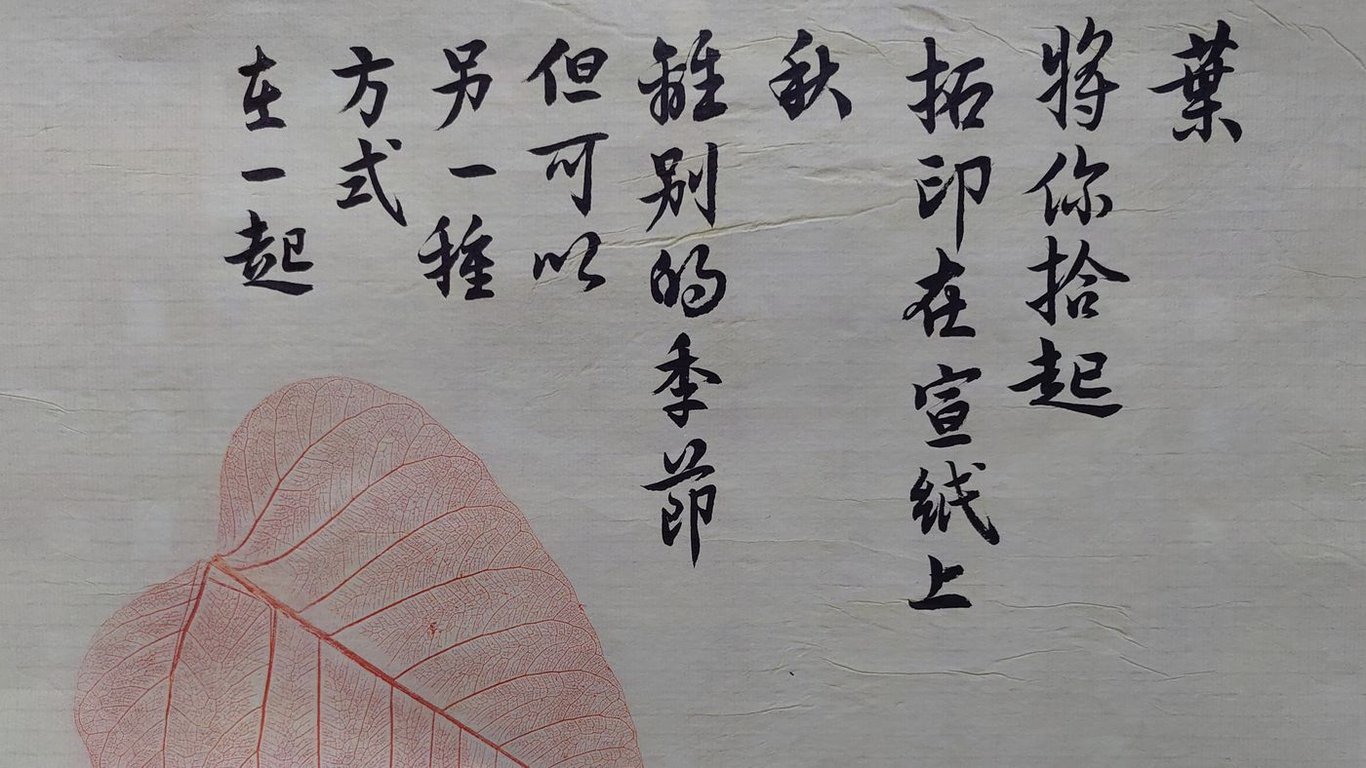 葉
將你拾起
拓印在宣紙上
秋
離別的季節
但可以
另一種
方式
在一起